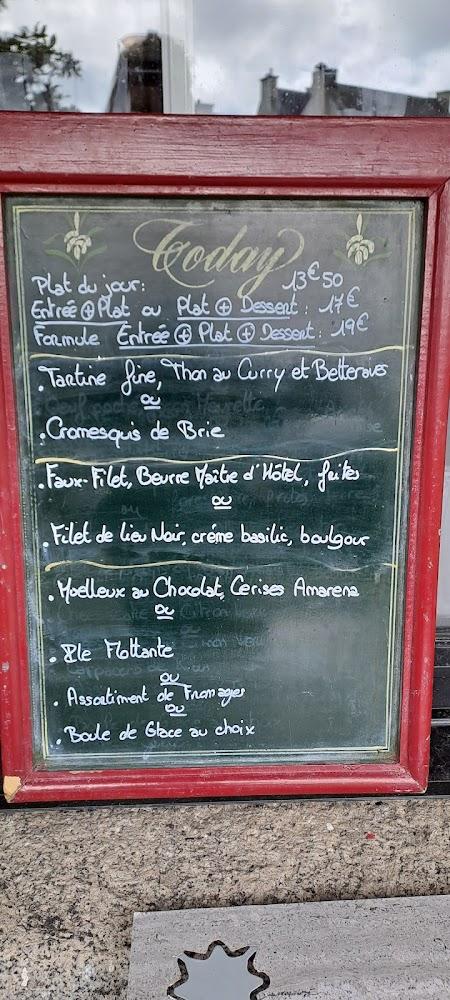 Today
Plat du jour: 13€50
Entrée ⊕ Plat ou Plat ⊕ Dessert : 17€
Formule Entrée ⊕ Plat ⊕ Dessert : 19€
. Tartine fine, Thon au Curry et Betteraves
ou
. Cromesquis de Brie
. Faux-Filet, Beurre Maître d'Hôtel, frites
ou
. Filet de lieu Noir, créme basilic, boulgour
. Moelleux au Chocolat, Cerises Amarena
ou
. Ile Flottante
ou
. Assortiment de Fromages
ou
. Boule de Glace au choix